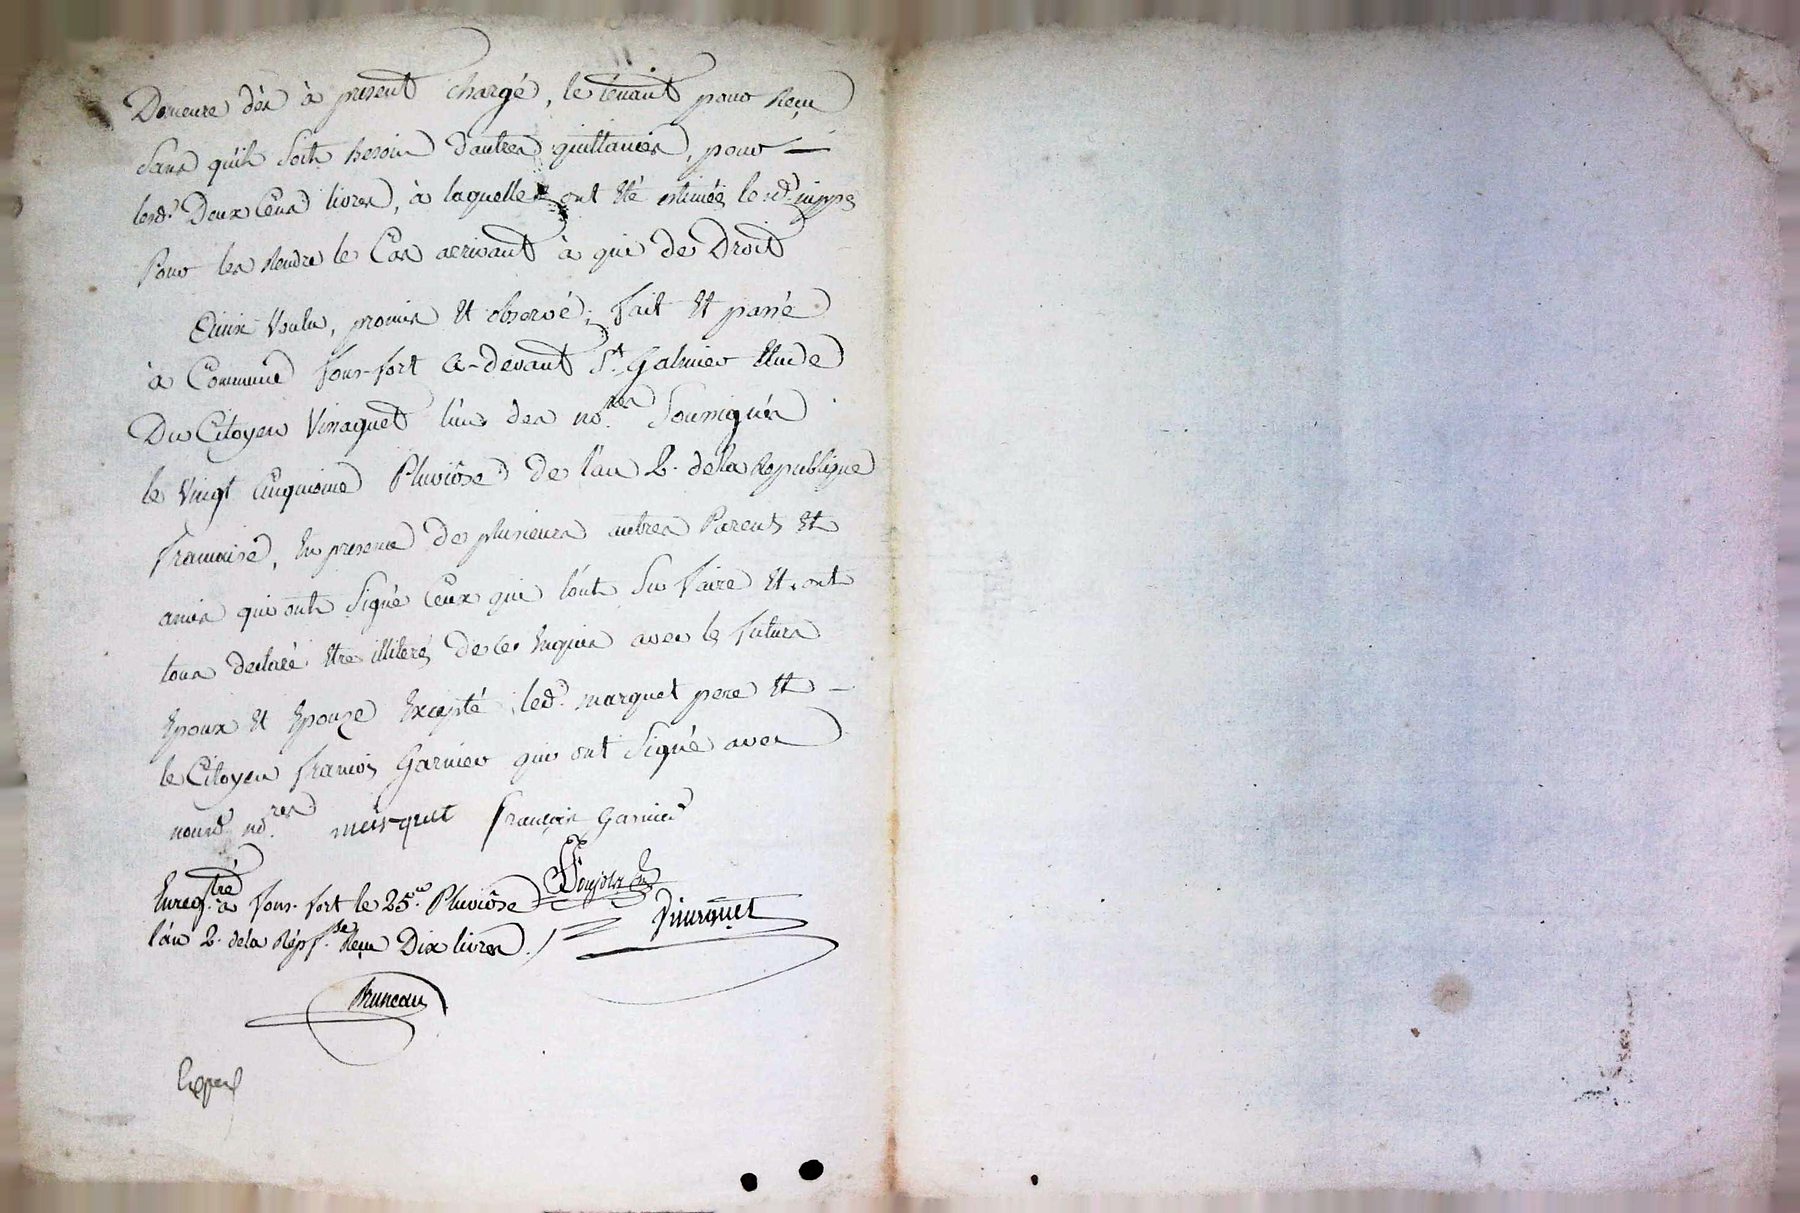 Demeure dès à present chargé, le tenant pour Reçu
Sans qu'il soit besoin d'autres quittances, pour —
lesd. Deux Cens livres, à laquelle ont été estimées lesd. nippes
Pour les Rendre le Cas arrivant à qui de Droit
Ainsi Voulu, promis Et observé; fait Et passé
à Commune fons-fort ci-devant St. Galmier Etude
Du Citoyen Vinaquet l'un des nores. Soussignés
le Vingt cinquieme Pluviôse de l'an 2. de la Republique
francaise, En presence De plusieurs autres Parents Et
amis qui ont Signé Ceux qui l'ont Su faire Et ont
tous declaré Etre illiterés de ce Enquis avec les futurs
Epoux Et Epouze Excepté led. marquet pere Et —
le Citoyen francois Garnier qui ont Signé avec
nousd. nores. marquet francois Garnier
Enregtré. à fons-fort le 25e. Pluviôse
l'an 2. de la Rép. fse. Reçu Dix livres.
Bruneau